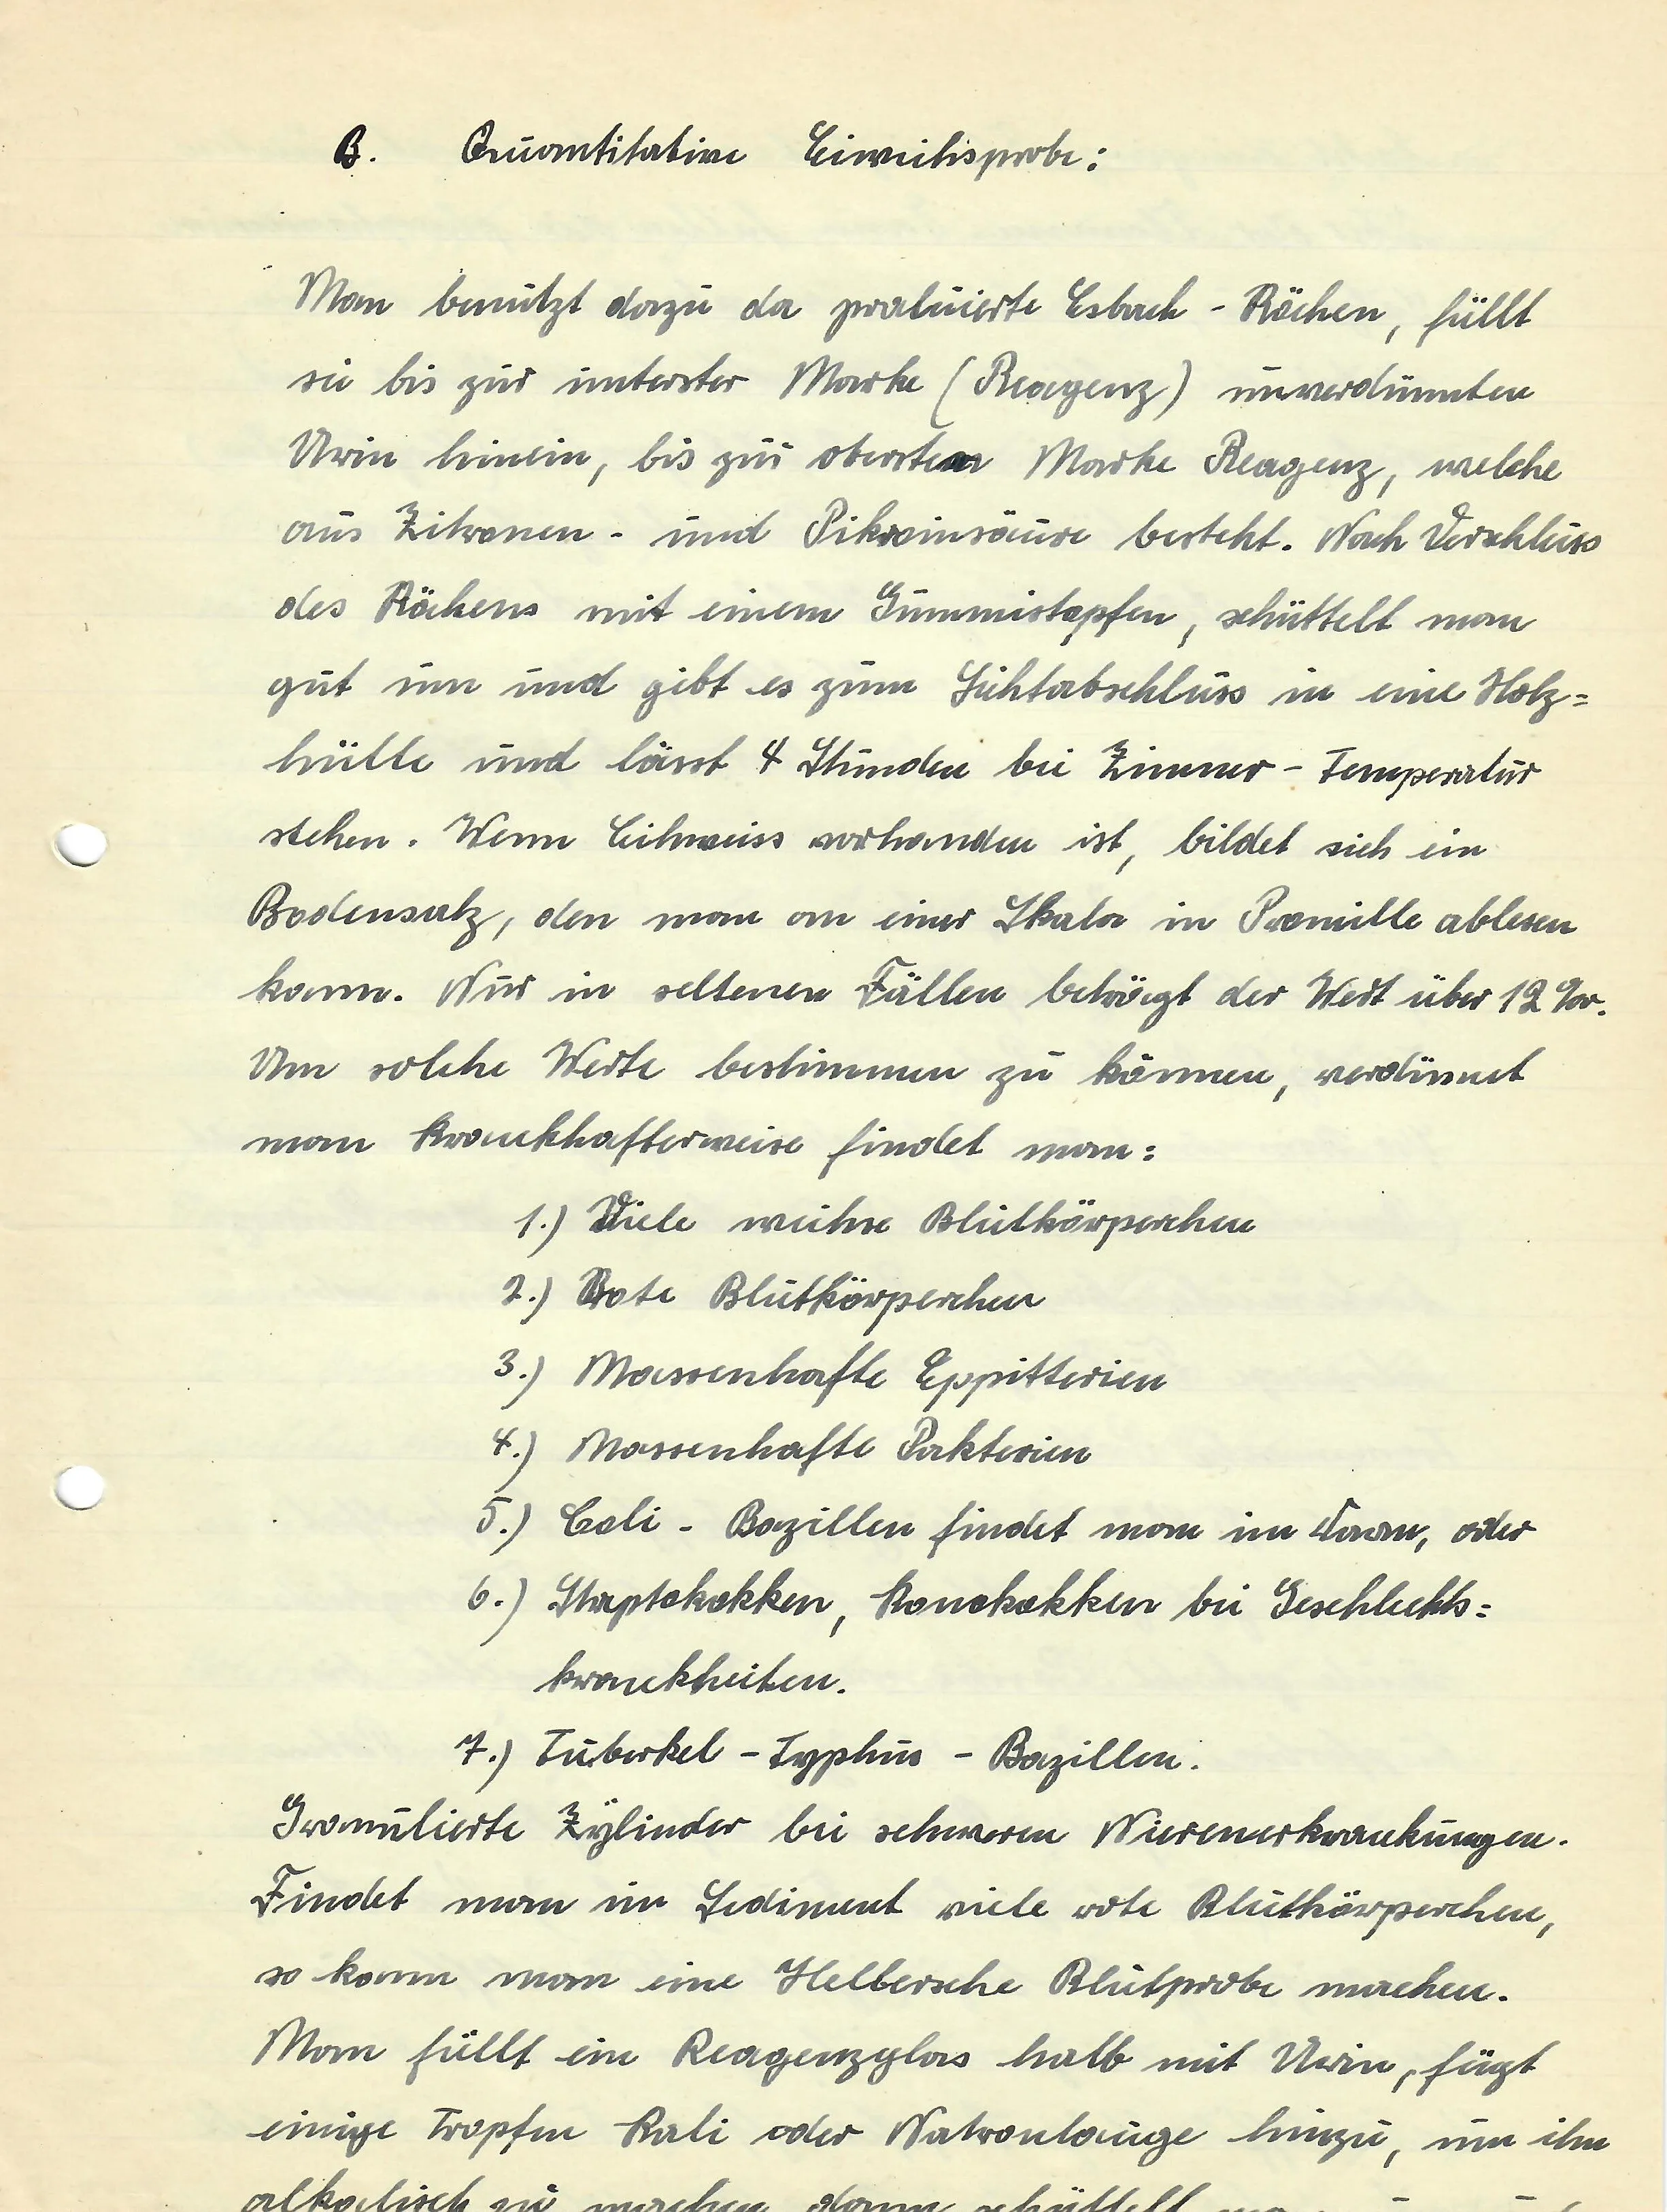 B. Quantitative Eiweihsprobe:
Man benützt dazu da praluierte Esbach - Röhen, füllt
sie bis zur unterster Marke (Reagenz) unverdünnten
Urin hinein, bis zur obersten Marke Reagenz, welche
aus Zitronen - und Pikrainsäure besteht. Nach Verschluss
des Röhens mit einem Gummistopfen, schüttelt man
gut um und gibt es zum Lichtabschluss in eine Holz=
hülle und lässt 4 Stunden bei Zimmer - Temperatur
stehen. Wenn Eihweiss vorhanden ist, bildet sich ein
Bodensatz, den man an einer Skala in Promille ablesen
kann. Nur in seltenen Fällen beträgt der Wert über 12 ‰.
Um solche Werte bestimmen zu können, verdünnet
man krankhafterweise findet man:
1.) Viele weihse Blutkörperchen
2.) Rote Blutkörperchen
3.) Massenhafte Eppitterien
4.) Massenhafte Pakterien
5.) Coli - Bazillen findet man im oder
6.) Straptokokken, Konokokken bei Geschlechts=
krankheiten.
7.) Tuberkel - Typhus - Bazillen.
Granulierte Zylinder bei schweren Nierenerkrankungen.
Findet man im Sediment viele rote Blutkörperchen,
so kann man eine Helbersche Blutprobe machen.
Man füllt ein Reagenzglas halb mit Urin, fügt
einige Tropfen Kali oder Natronlauge hinzu, um ihn
alkalisch zu machen, dann schüttelt